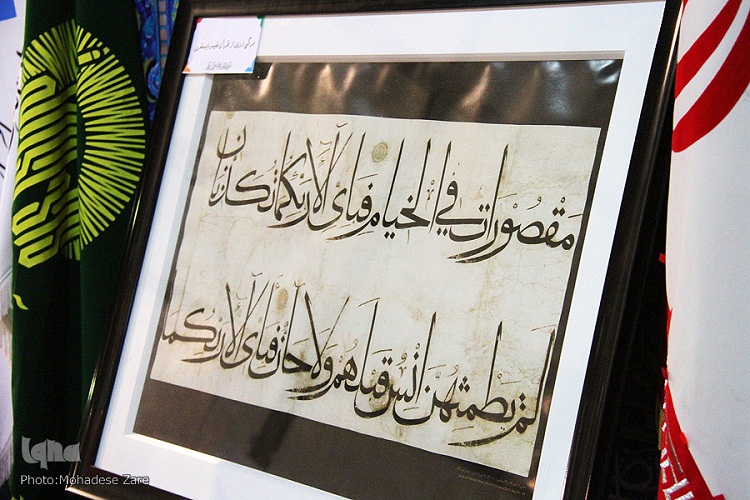 مقصورات في الخيام فباى آلاء ربكما تكذبان
لم يطمثهن انس قبلهم ولا جان فباى آلاء ربكما
iqna
Photo:Mohadese Zare